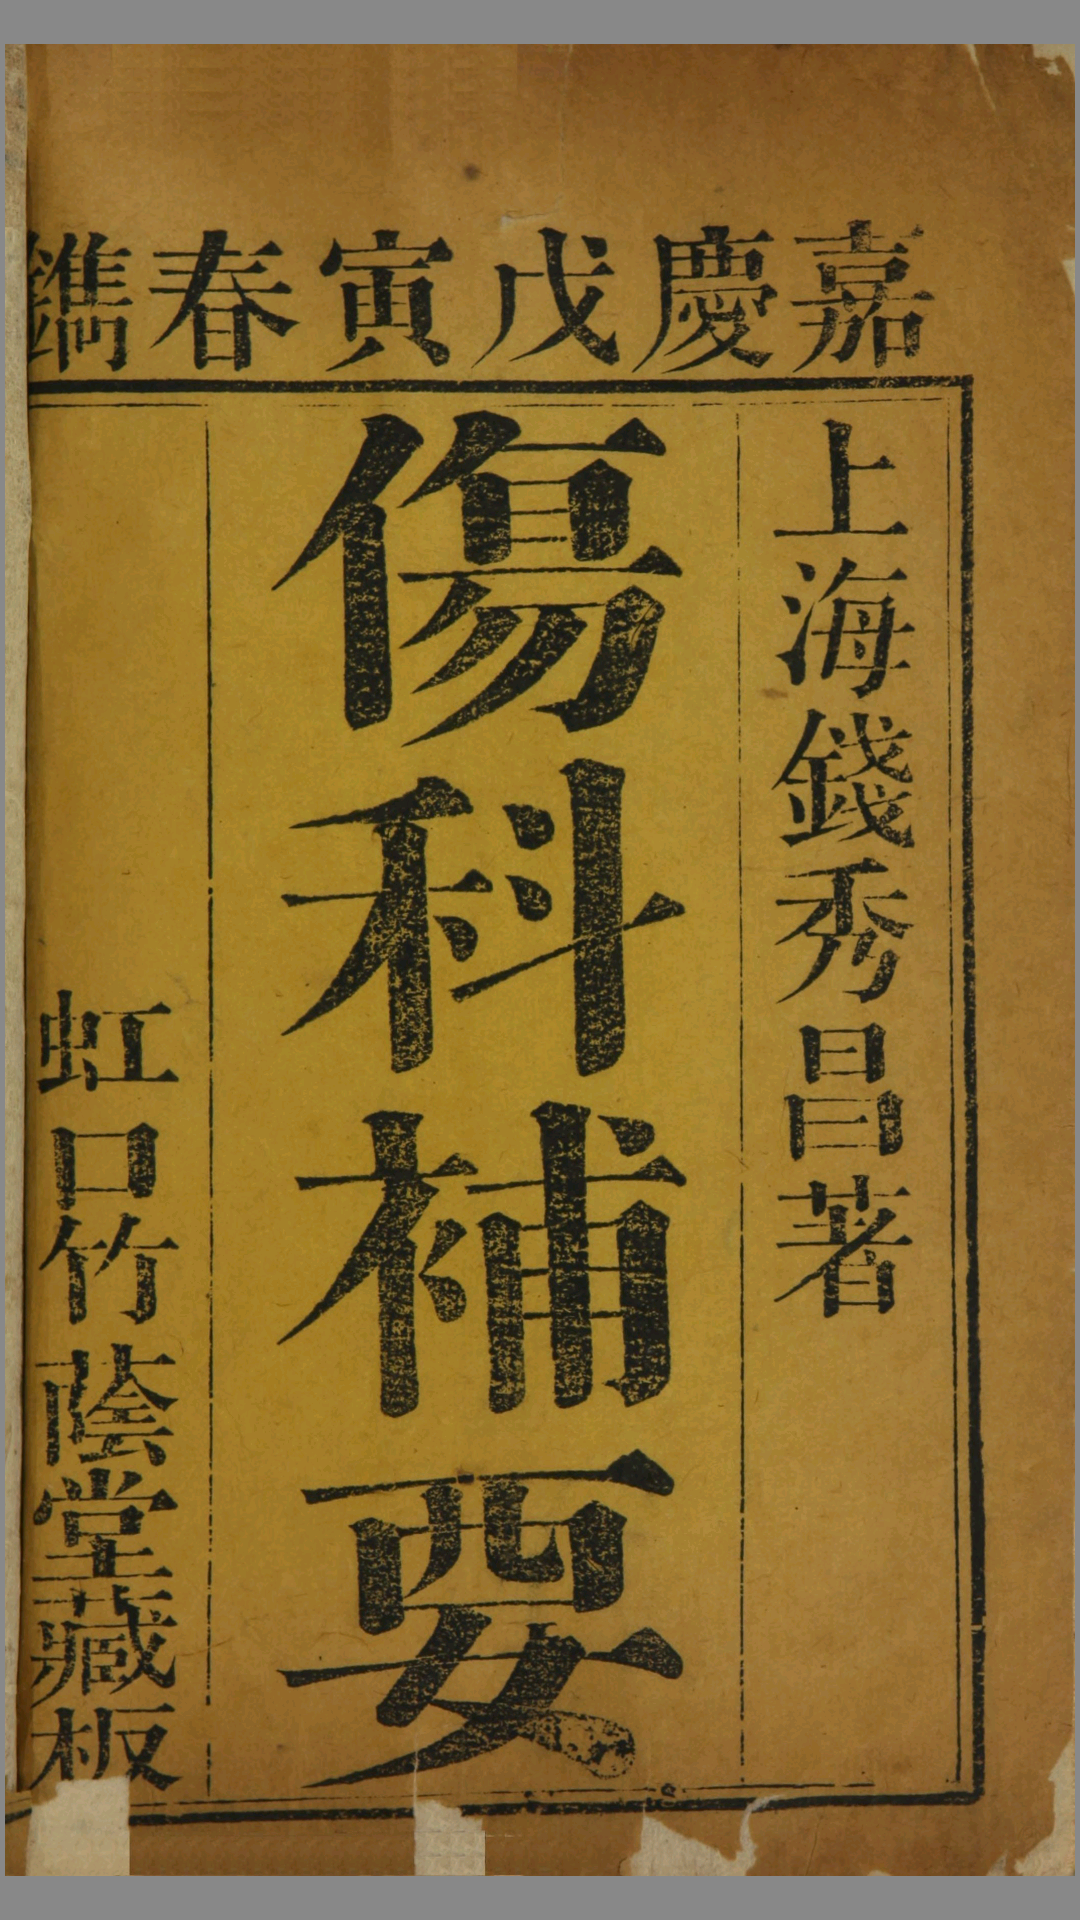 嘉慶戊寅春鐫
上海錢秀昌著
傷科補要
虹口竹蔭堂藏板